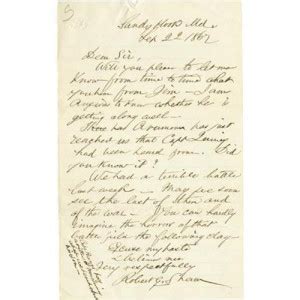 Sandy Hook Md.
Sep 22 1862
Dear Sir,
Will you please to let me
know from time to time what
you hear from Jim - I am
anxious to know whether he is
getting along well -
There has a rumour has just
reached us that Capt
had been heard from. Did
you know it?
We had a terrible battle
last week - may we soon
see the last of them and
of the war - You can hardly
imagine the horrors of that
battle field the following day
Excuse my haste
& believe me
Very respectfully
Robert